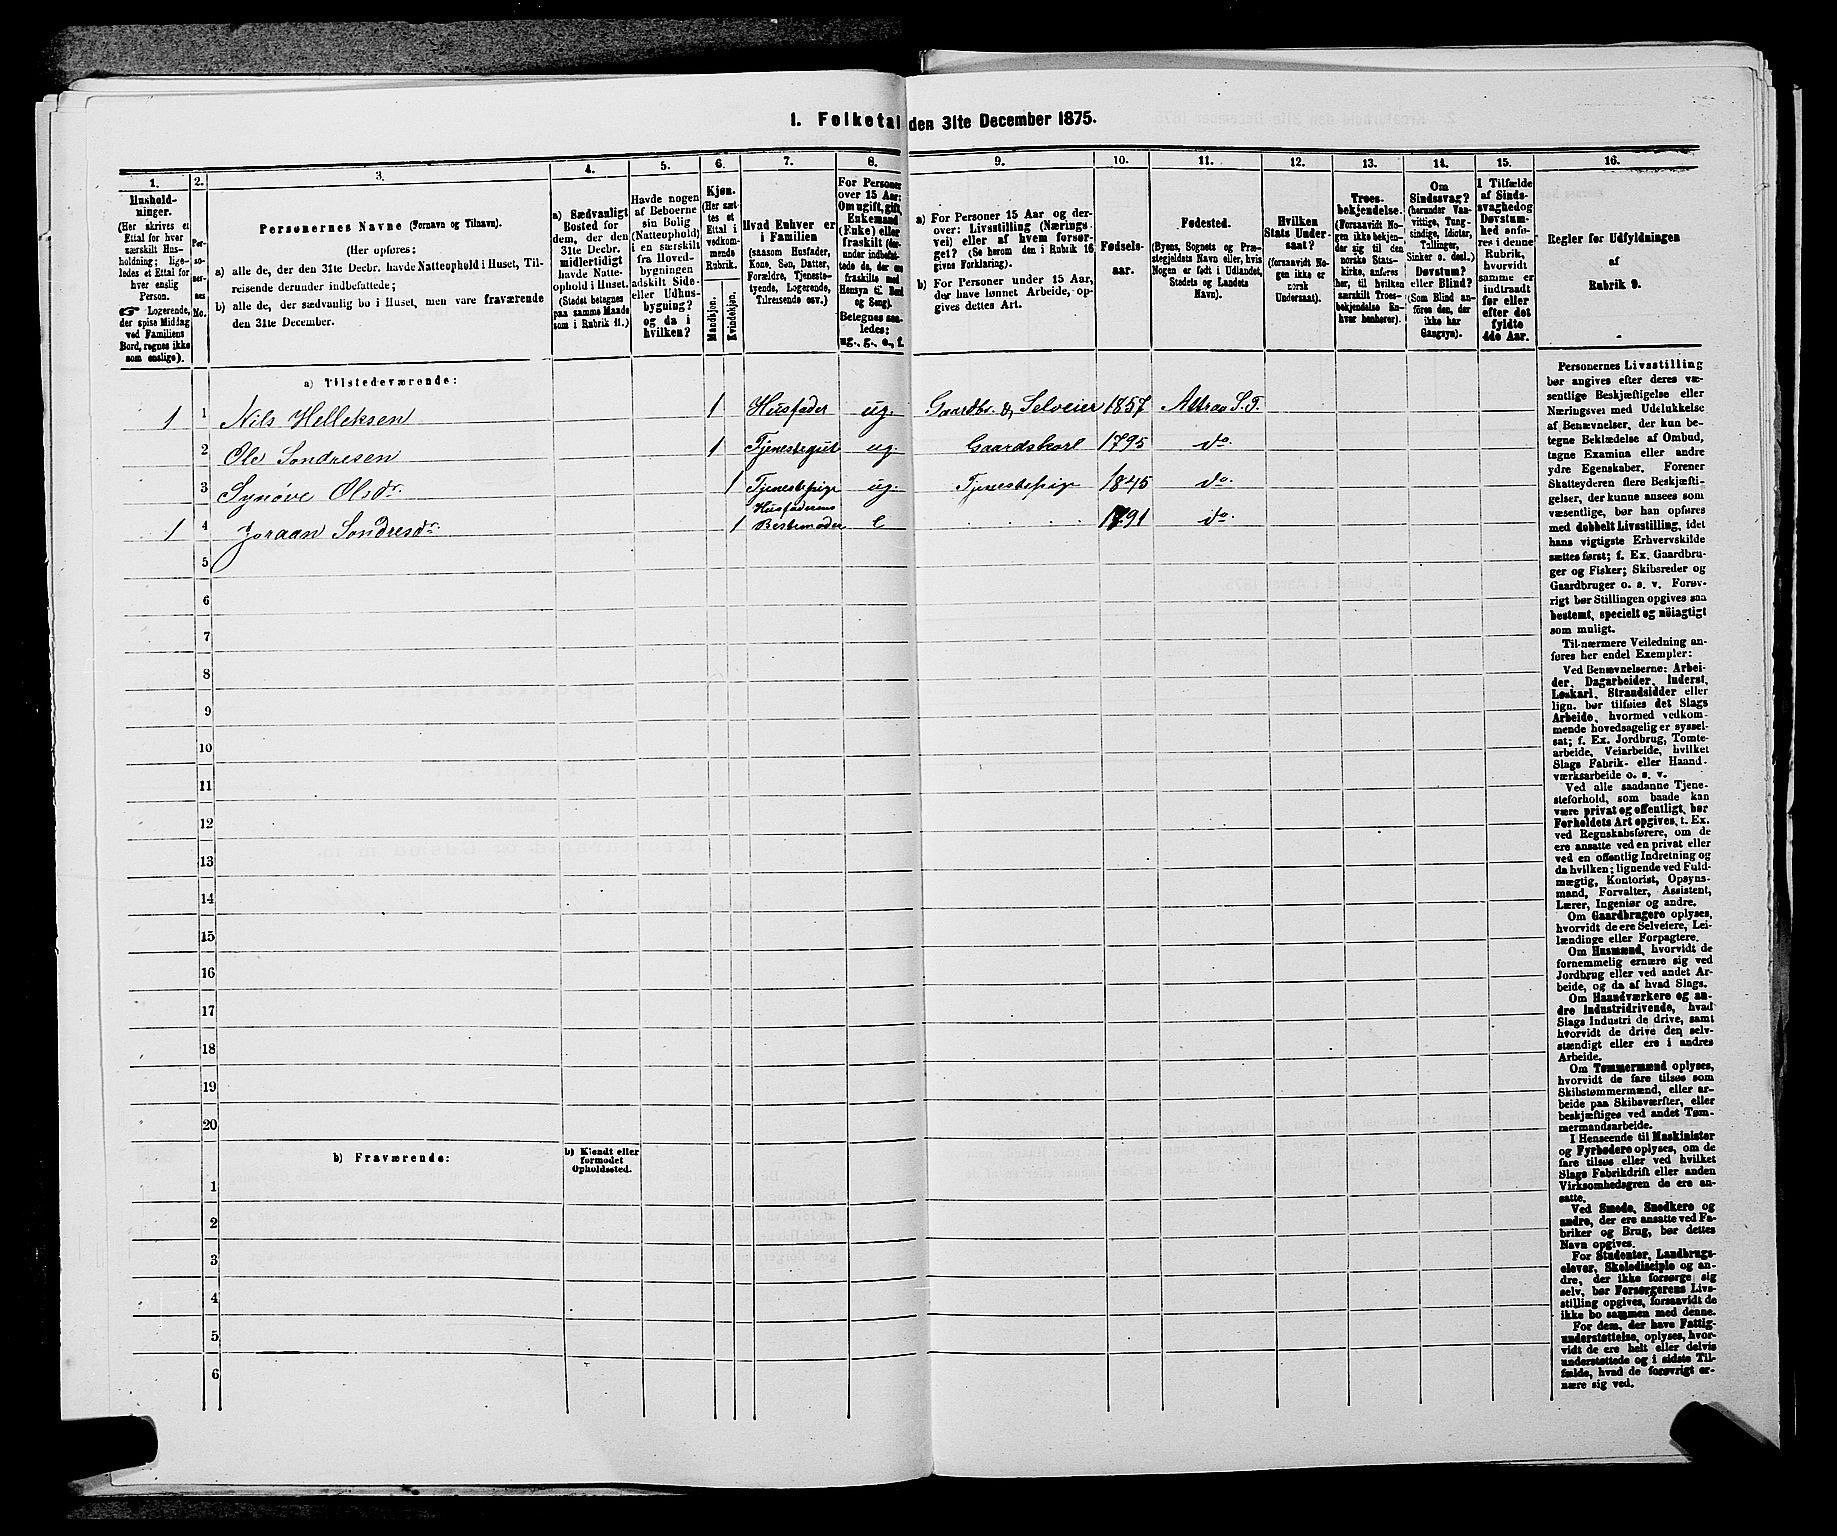 1. Folketal den 31te December 1875.
1. 2. 3. 4. 5. 6. 7. 8. 9. 10. 11. 12. 13. 14. 15. 16.
Hushold-
ninger.
(Her skrives et
Ettal for hver
særskilt Hus-
holdning; lige-
ledes et Ettal for
hver enslig
Person.
☞ Logerende,
der spise Middag
ved Familiens
Bord, regnes ikke
som enslige).
Per-
so-
ner-
nes
No.
Personernes Navne (Fornavn og Tilnavn).
(Her opføres:
a) alle de, der den 31te Decbr. havde Natteophold i Huset, Til-
reisende derunder indbefattede;
b) alle de, der sædvanlig bo i Huset, men vare fraværende
den 31te December.
a) Sædvanligt
Bosted for
dem, der den
31te Decbr.
midlertidigt
havde Natte-
ophold i Huset.
(Stedet betegnes
paa samme Maade
som i Rubrik 11.)
Havde nogen
af Beboerne
sin Bolig
(Natteophold)
i en særskilt
fra Hoved-
bygningen
adskilt Side-
eller Udhus-
bygning?
og da i
hvilken?
Kjøn.
(Her sæt-
tes et
Ettal i
vedkom-
mende
Rubrik.
Mandkjøn.
Kvindekjøn.
Hvad Enhver er
i Familien
(saasom Husfader,
Kone, Søn, Datter,
Forældre, Tjeneste-
tyende, Logerende,
Tilreisende osv.)
For Personer
over 15 Aar:
Om ugift, gift,
Enkemand
(Enke) eller
fraskilt (der-
under indbefat-
tede de, der ere
fraskilte med
Hensyn til Bord
og Seng).
Betegnes saa-
ledes:
ug., g., e., f.
a) For Personer 15 Aar og der-
over: Livsstilling (Nærings-
vei) eller af hvem forsør-
get? (Se herom den i Rubrik 16
givne Forklaring).
b) For Personer under 15 Aar,
der have lønnet Arbeide, op-
gives dettes Art.
Fødsels-
aar.
Fødested.
(Byens, Sognets og Præ-
stegjeldets Navn eller, hvis
Nogen er født i Udlandet,
Stedets og Landets
Navn).
Hvilken
Stats Under-
saat?
(forsaavidt No-
gen ikke er
norsk
Undersaat).
Troes-
bekjendelse.
(Forsaavidt No-
gen ikke bekjen-
der sig til den
norske Stats-
kirke, anføres
her, til hvilken
særskilt Troes-
bekjendelse En-
hver henhører).
Om
Sindssvag?
(herunder Van-
vittige, Idioter,
Tullinger,
Sinker o. desl.)
Døvstum?
eller Blind?
(Som Blind an-
føres den, der
ikke har
Gangsyn).
I Tilfælde
af Sinds-
svaghed og
Døvstum-
hed anfø-
res i denne
Rubrik,
hvorvidt
samme er
indtraadt
før eller
efter det
fyldte
4de Aar.
Regler for Udfyldningen
af
Rubrik 9.
a) Tilstedeværende:
1 1 Nils Helleksen 1 Husfader ug. Gaardbr. & Selveier 1857 Attraa S. T.
2 Ole Sondresen 1 Tjenestegut ug. Gaardskarl 1795 do.
3 Synøve Olsdr. 1 Tjenestepige ug. Tjenestepige 1845 do.
1 4 Joraan Sondresdr. 1 Husfaderens Bestemoder E 1791 do.
5
6
7
8
9
10
11
12
13
14
15
16
17
18
19
20
b) Fraværende:
b) Kjendt eller
formodet
Opholdssted.
1
2
3
4
5
6
Personernes Livsstilling
bør angives efter deres væ-
sentlige Beskjæftigelse eller
Næringsvei med Udelukkelse
af Benævnelser, der kun be-
tegne Beklædelse af Ombud,
tagne Examina eller andre
ydre Egenskaber. Forener
Skatteyderen flere Beskjæfti-
gelser, der kunne ansees som
væsentlige, bør han opføres
med dobbelt Livsstilling, idet
hans vigtigste Erhvervskilde
sættes først; f. Ex. Gaardbru-
ger og Fisker; Skibsreder og
Gaardbruger o. s. v. Forøv-
rigt bør Stillingen opgives saa
bestemt, specielt og nøiagtigt
som muligt.
Til nærmere Veiledning an-
føres her endel Exempler:
Ved Benævnelserne: Arbei-
der, Dagarbeider, Inderst,
Løskarl, Strandsidder eller
lign. bør tilføies det Slags
Arbeide, hvormed vedkom-
mende hovedsagelig er syssel-
sat; f. Ex. Jordbrug, Tomte-
arbeide, Veiarbeide, hvilket
Slags Fabrik- eller Haand-
værksarbeide o. s. v.
Ved alle saadanne Tjene-
steforhold, som baade kan
være privat og offentligt, bør
Forholdets Art opgives, t. Ex.
ved Regnskabsførere, om de
ere ansatte ved en privat eller
ved en offentlig Indretning og
da hvilken; lignende ved Fuld-
mægtig, Kontorist, Opsyns-
mand, Forvalter, Assistent,
Lærer, Ingeniør og andre.
Om Gaardbrugere oplyses,
hvorvidt de ere Selveiere, Lei-
lændinge eller Forpagtere.
Om Husmænd, hvorvidt de
fornemmelig ernære sig ved
Jordbrug eller ved andet Ar-
beide, og da af hvad Slags.
Om Haandværkere og an-
dre Industridrivende, hvad
Slags Industri de drive, samt
hvorvidt de drive den selv-
stændigt eller ere i andres
Arbeide.
Om Tømmermænd oplyses,
hvorvidt de fare tilsøs som
Skibstømmermænd, eller ar-
beide paa Skibsværfter, eller
beskjæftiges ved andet Tøm-
mermandsarbeide.
I Henseende til Maskinister
og Fyrbødere oplyses, om de
fare tilsøs eller ved hvilket
Slags Fabrikdrift eller anden
Virksomhedsgren de ere an-
satte.
Ved Smede, Snedkere og
andre, der ere ansatte ved Fa-
briker og Brug, bør dettes
Navn opgives.
For Studenter, Landbrugs-
elever, Skoledisciple og an-
dre, der ikke forsørge sig
selv, bør Forsørgerens Livs-
stilling opgives, forsaavidt de
ikke bo sammen med denne.
For dem, der have Fattig-
understøttelse, oplyses, hvor-
vidt de ere helt eller delvis
understøttede og i sidste Til-
fælde, hvad de forøvrigt er-
nære sig ved.